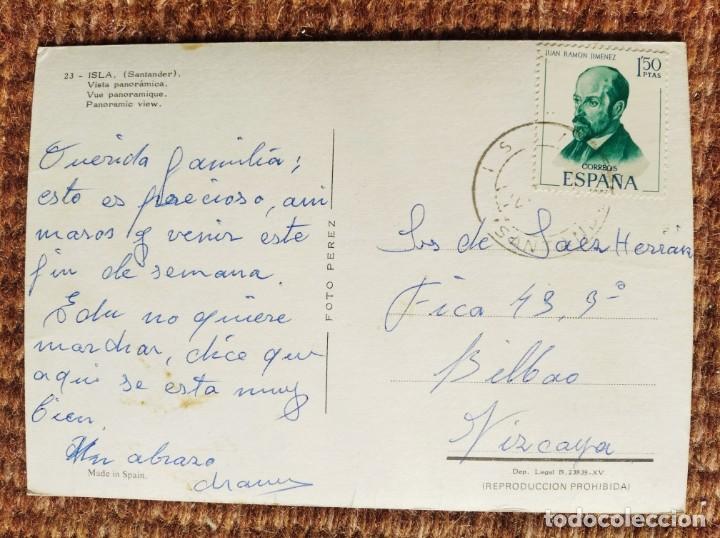 23 - ISLA, (Santander).
Vista panorámica.
Vue panoramique.
Panoramic view.
Querida familia;
esto es precioso, ani
maros y venir este
fin de semana.
Edu no quiere
marchar, dice que
aqui se esta muy
bien.
Un abrazo
Made in Spain.
FOTO PEREZ
JUAN RAMON JIMENEZ
1'50
PTAS
CORREOS
ESPAÑA
Srs de Saez Herrán
Fica 43, 3º
Bilbao
Vizcaya
Dep. Legal B. 23939-XV
(REPRODUCCION PROHIBIDA)
todocoleccion.net